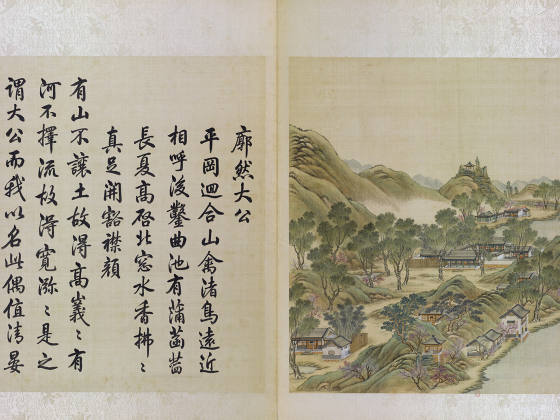 廓然大公
平岡迴合山禽渚鳥遠近
相呼後鑿曲池有蒲菡萏
長夏高啓北窓水香拂〻
真足開豁襟顔
有山不讓土故得高㠖〻有
河不擇流故得寬瀰〻是之
謂大公而我以名此偶值清晏